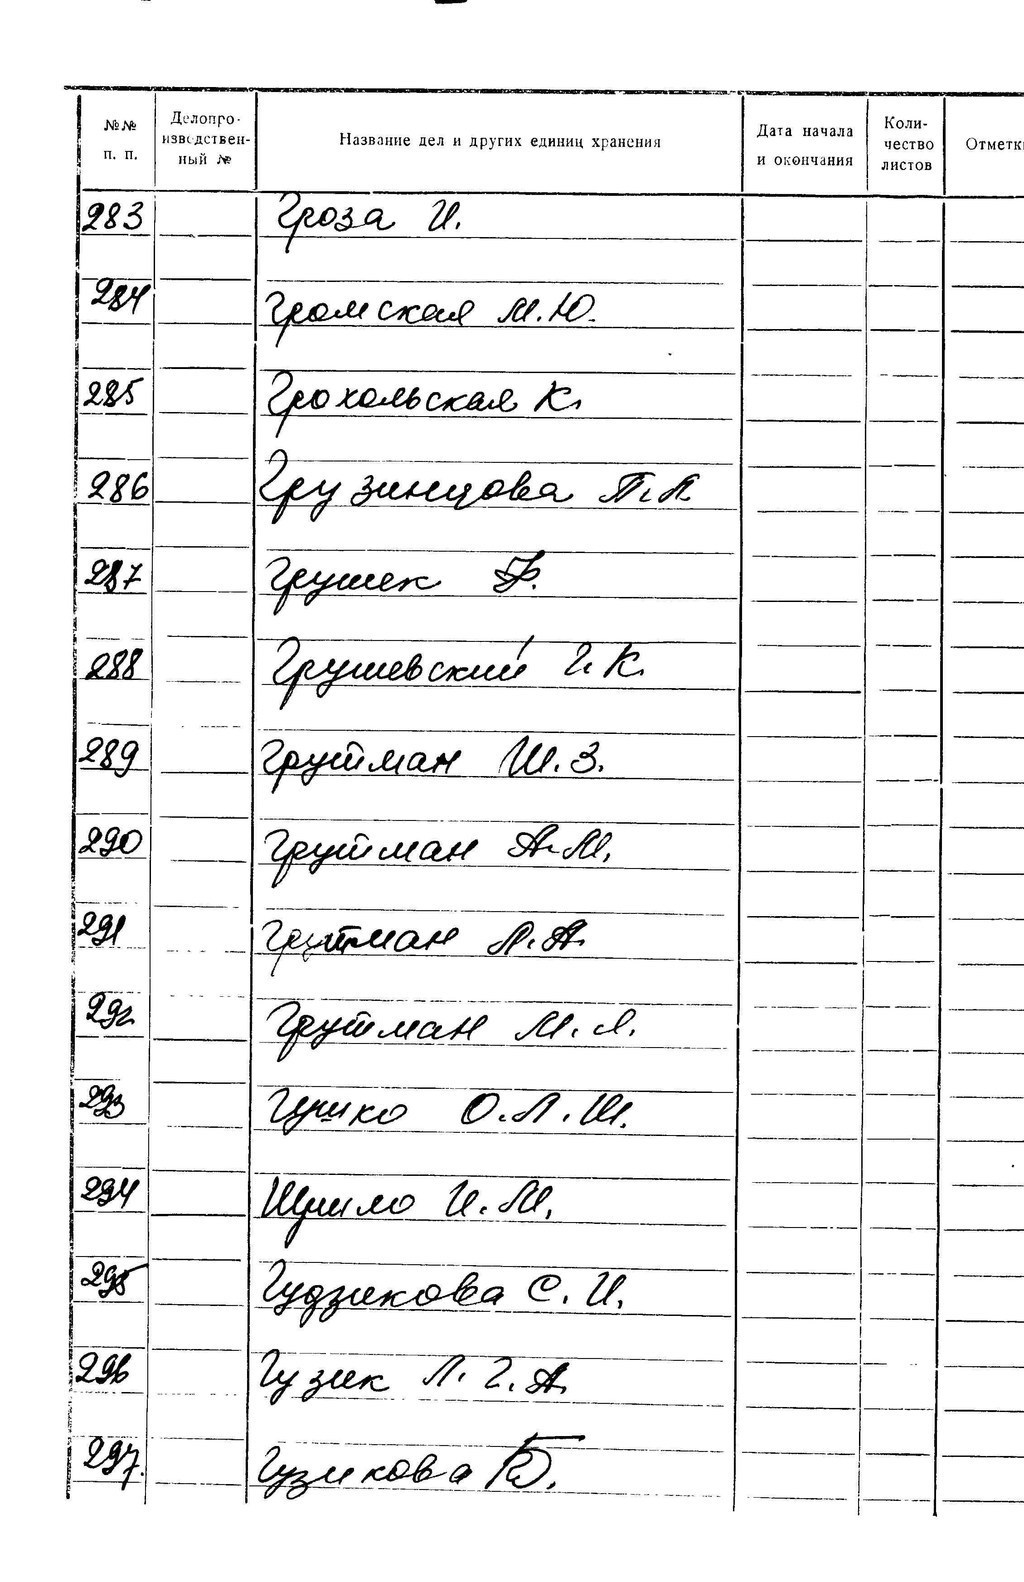 №№ п. п. Делопро-изводствен-ный № Название дел и других единиц хранения Дата начала и окончания Коли-чество листов Отметк
283 Гроза И.
284 Громская М.Ю.
285 Грохольская К.
286 Грузинцова П.П.
287 Грушек Ф.
288 Грушевский Г.К.
289 Грутман Ш.З.
290 Грутман А.М.
291 Грутман Л.А.
292 Грутман М.Л.
293 О.Л.Ш.
294 И.М.
295 Гудзикова С.И.
296 Гузик Л.Г.А.
297. Гузикова Б.